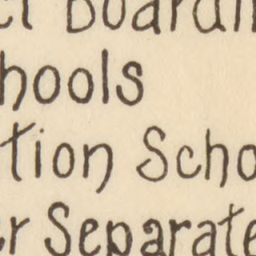 Boardin
hools
tion Scho
er Separate